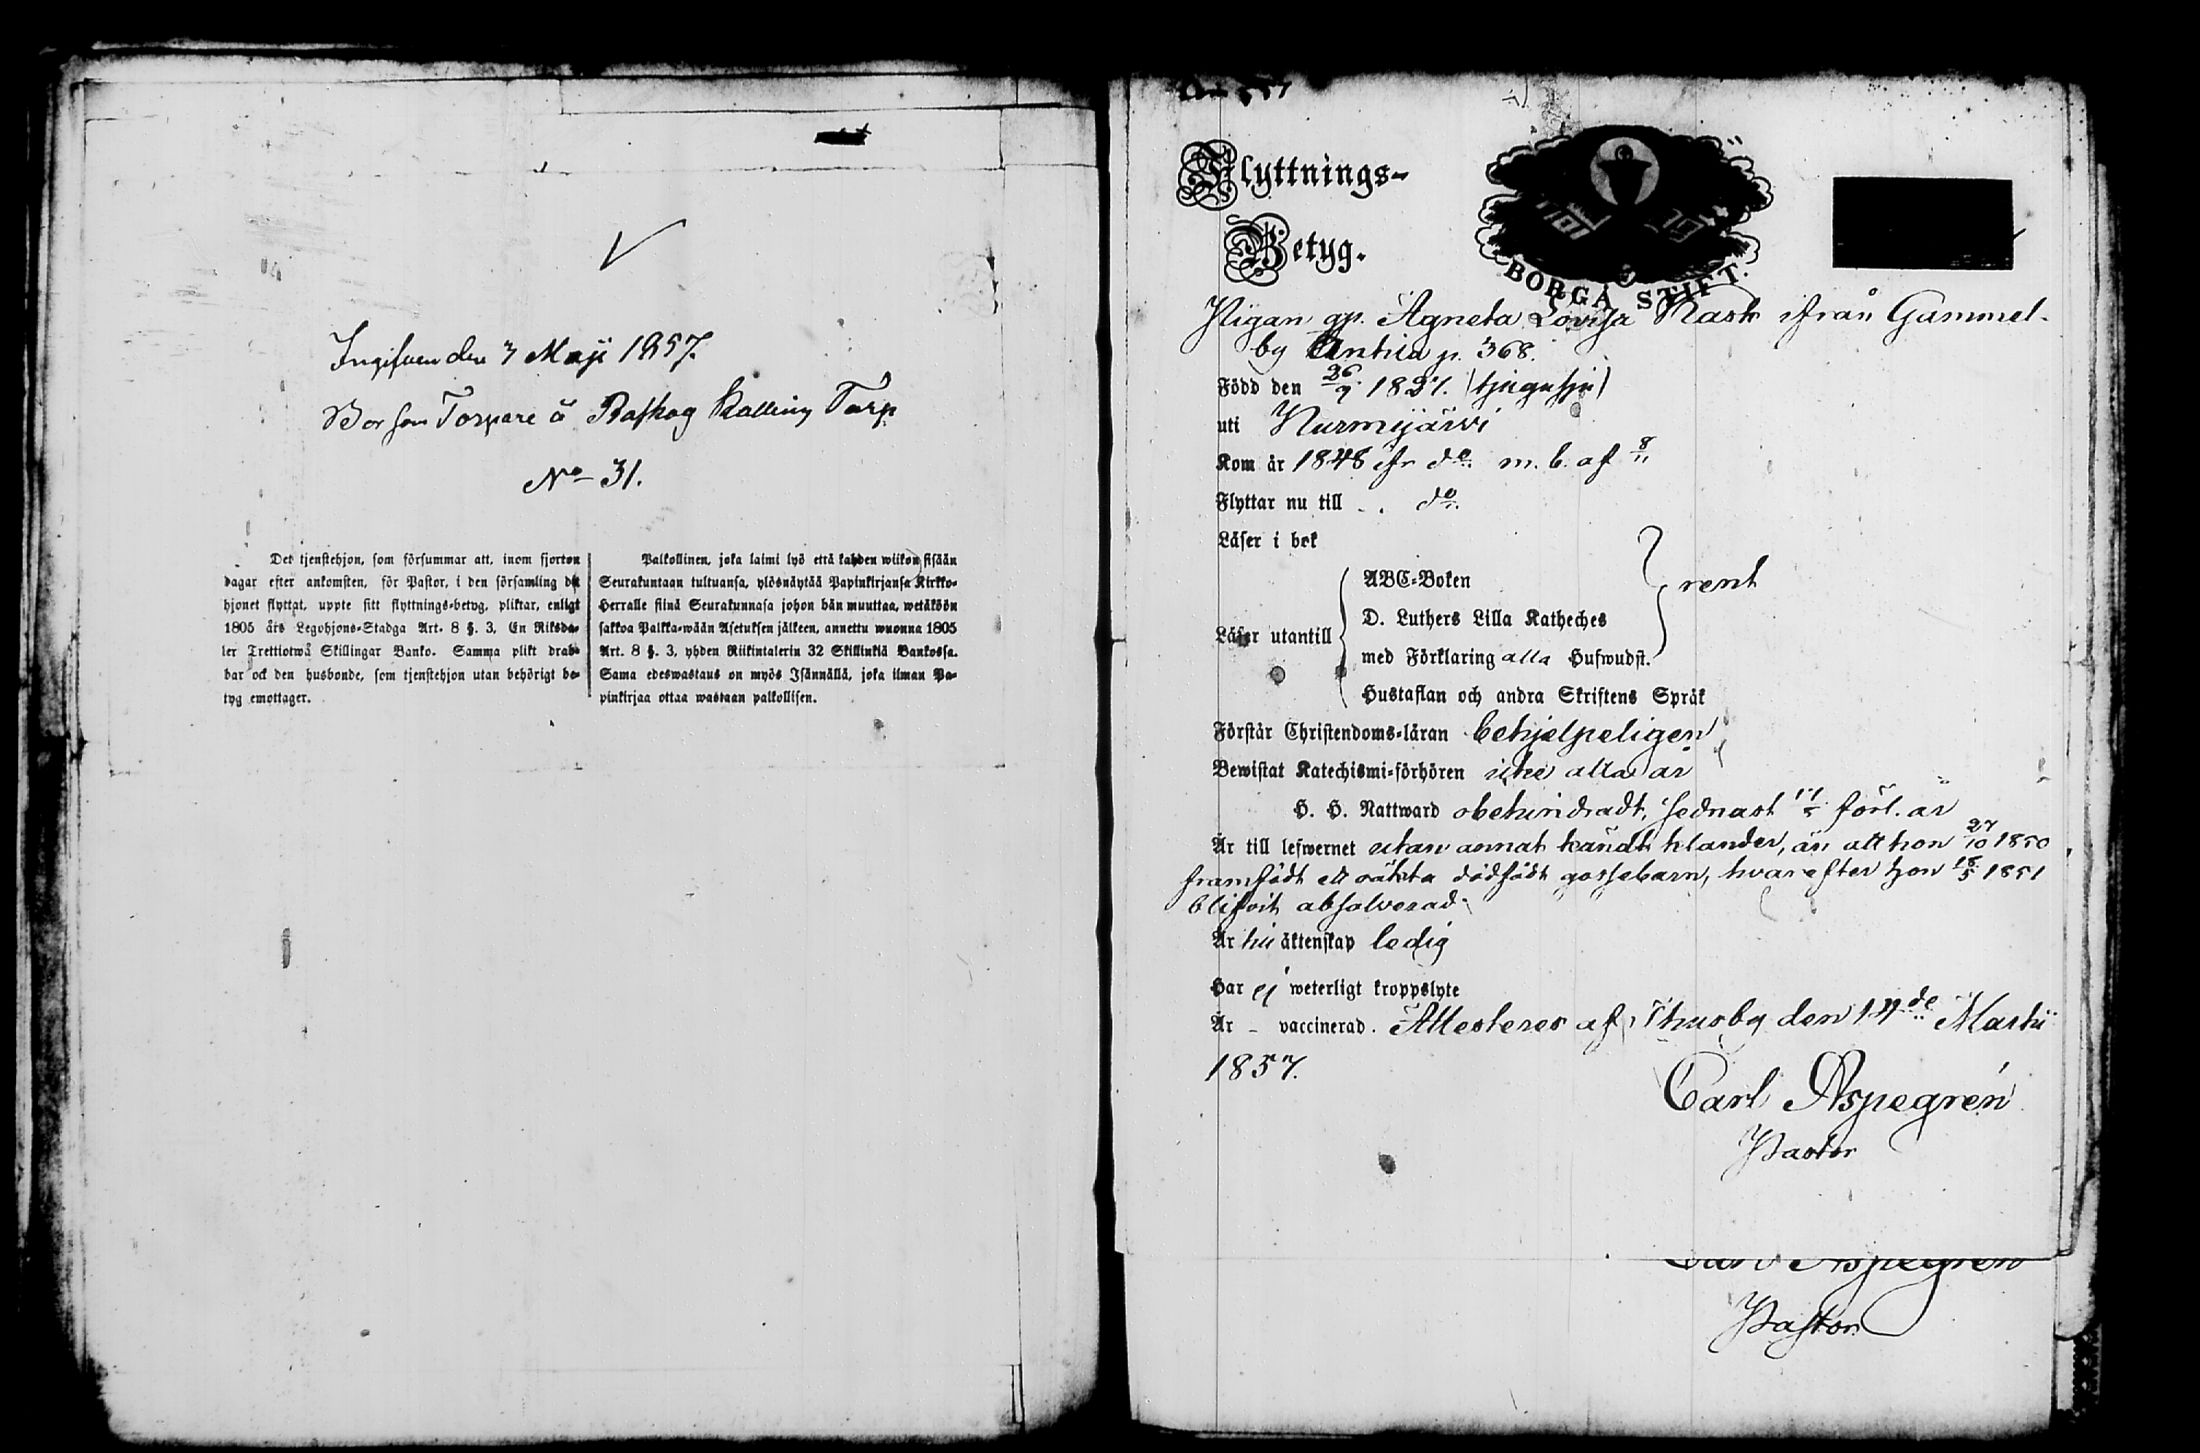 Ingifven den 3 Maji 1857.
Bor som Torpare å Raskog Kalling Torp
No 31.
Det tjenstehjon, som försummar att, inom fjorton
dagar efter ankomsten, för Pastor, i den församling dit
hjonet flyttat, uppte sitt flyttnings-betyg, pliktar, enligt
1805 års Legohjons-Stadga Art. 8 §. 3, En Riksda-
ler Trettiotwå Skillingar Banko. Samma plikt drab-
bar ock den husbonde, som tjenstehjon utan behörigt be-
tyg emottager.
Palkollinen, joka laimi lyö että kahden wiikon sisään
Seurakuntaan tultuansa, ylösnäytää Papinkirjansa Kirkko-
Herralle siinä Seurakunnasa johon hän muuttaa, wetäköön
sakkoa Palkka-wään Asetuksen jälkeen, annettu wuonna 1805
Art. 8 §. 3, yhden Riikintalerin 32 Skillinkiä Bankossa.
Sama edeswastaus on myös Isännällä, joka ilman Pa-
pinkirjaa ottaa wastaan palkollisen.
Flyttnings-
Betyg.
BORGÅ STIFT.
Pigan gp. Agneta Lovisa Rask ifrån Gammel-
by Antila p. 368.
Född den 26/9 1827. (tjugusju)
uti Nurmijärvi
Kom år 1848 ifr do m. b. af 8/11
Flyttar nu till do.
Läser i bok
ABC-Boken
D. Luthers Lilla Katheches
Läser utantill
med Förklaring alla Hufwudst.
rent
Hustaflan och andra Skriftens Språk
Förstår Christendoms-läran behjelpeligen
Bewistat Katechismi-förhören icke alla år
H. H. Nattward obehindradt, sednast förl. år
Är till lefwernet utan annat kändt klander, än att hon 27/10 1850
framfödt ett oäkta dödfödt gossebarn, hvarefter hon 18/5 1851
blifvit absolverad.
Är till äktenskap ledig
Har ej weterligt kroppslyte
Är - vaccinerad. Attesteres af Thusby den 14de Martii
1857.
Carl Aspegrén
Pastor
Carl Aspegrén
Pastor